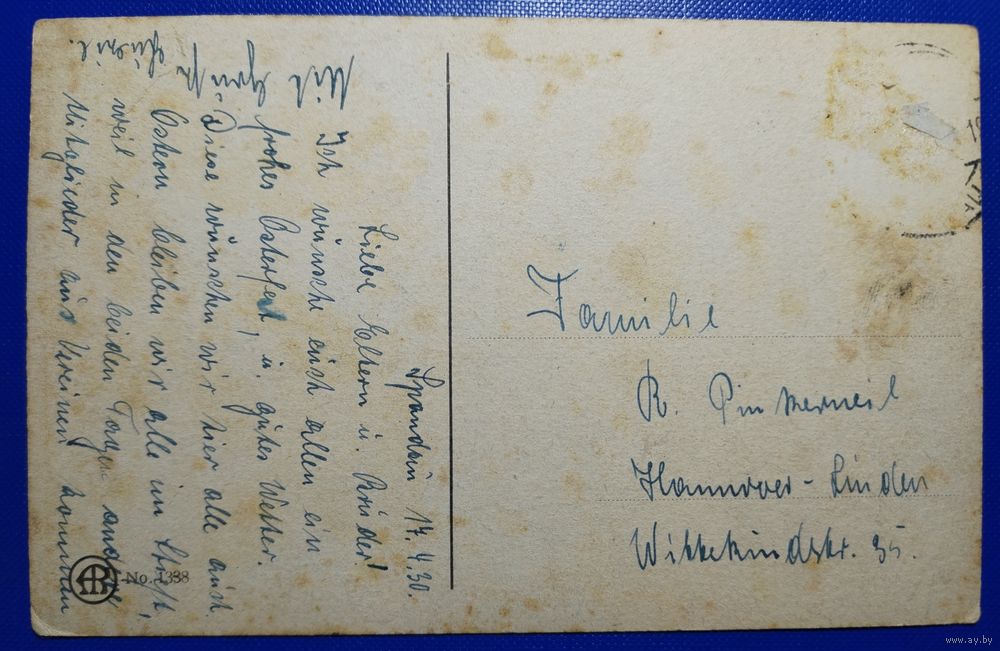 Spandau 17.4.30.
Liebe Eltern u. Brüder!
Ich wünsche euch allen ein
frohes Osterfest, u. gutes Wetter.
Diese wünschen wir hier alle auch.
Ostern bleiben wir alle im Stift,
weil in den beiden Tagen andre
Mitglieder aus Vereinen kommen
Mit Gruß
Familie
R. Pinkerneil
Hannover-Linden
Wittekindstr. 35.
No. 1338
www.ay.by